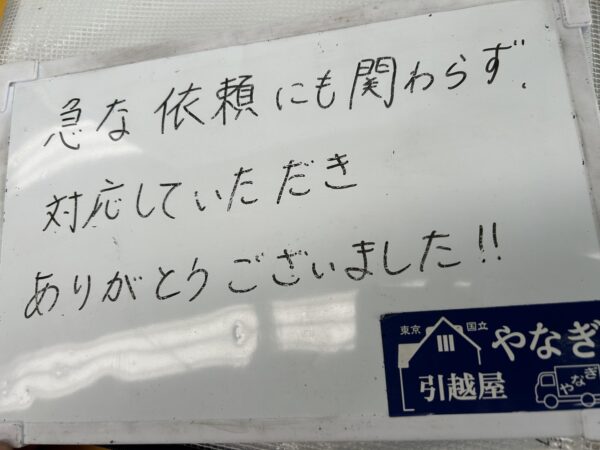 急な依頼にも関わらず、
対応していただき
ありがとうございました!!
東京 国立 やなぎ
引越屋 やなぎ